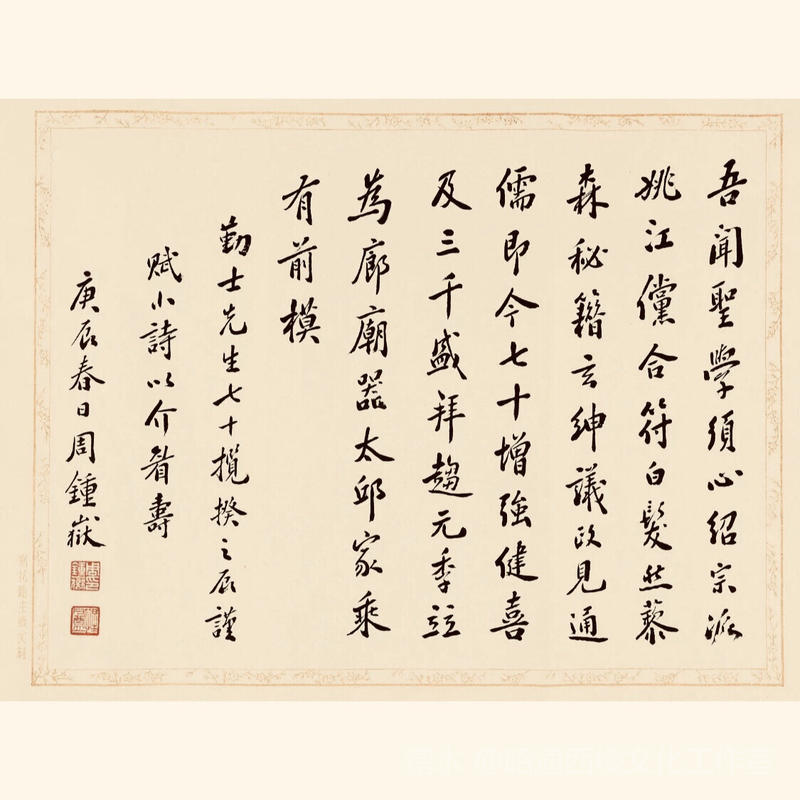 吾聞聖學須心紹宗派
姚江儻合符白髮然藜
森秘籍玄紳議政見通
儒即今七十增強健喜
及三千盛拜趨元季竝
為廊廟器太邱家乘
有前模
勤士先生七十攬揆之辰謹
賦小詩以介眉壽
庚辰春日周鍾嶽